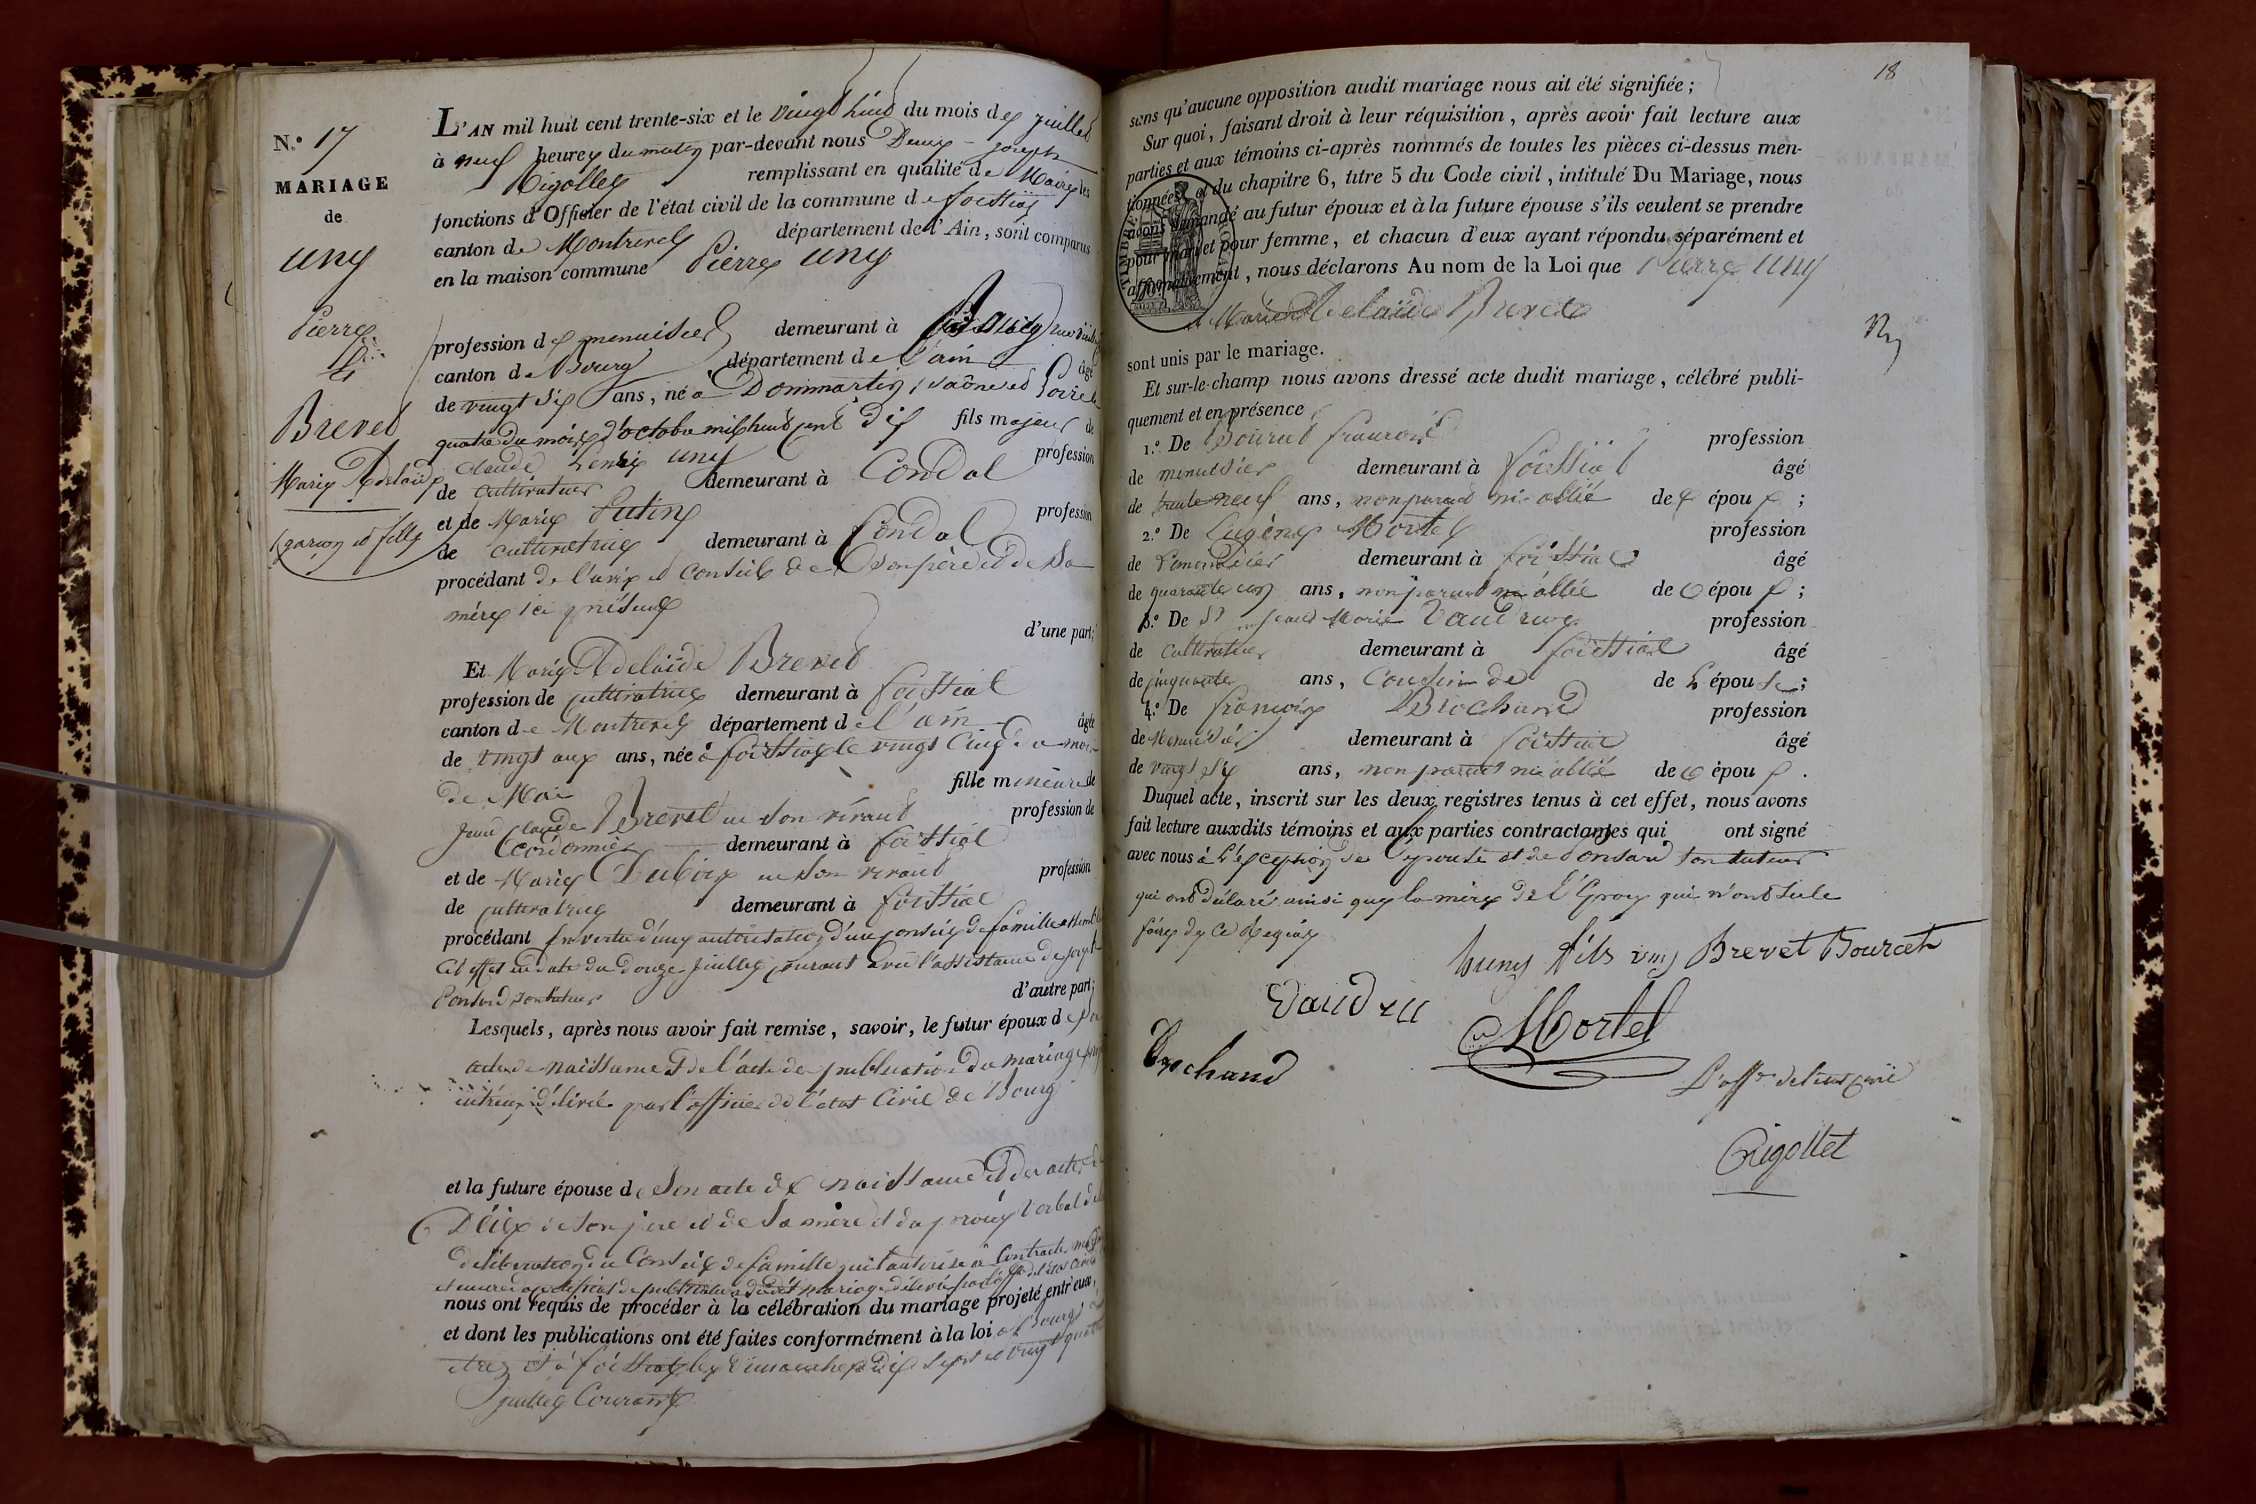 N.º 17
MARIAGE
de
uny
Pierre
Brevet
Marie Adelaïde
garçon et fille
L'AN mil huit cent trente-six et le vingt huit du mois de juillet
à neuf heures du matin par-devant nous Denis - Joseph
Rigollet remplissant en qualité de Maire les
fonctions d'Officier de l'état civil de la commune de foissiat
canton de Montrevel département de l'Ain, sont comparus
en la maison commune Pierre uny
profession de menuisier demeurant à Bourg
canton de Bourg département de l'ain âgé
de vingt six ans, né à Dommartin, Saône et Loire le
quatre du mois d'octobre mil huit cent dix fils majeur de
Claude Henri uny profession
de cultivateur demeurant à Condal
et de Marie Putin profession
de cultivatrice demeurant à Condal
procédant de l'avis et conseil de son père et de sa
mère ici présents
d'une part;
Et Marie Adelaïde Brevet
profession de cultivatrice demeurant à foissiat
canton de Montrevel département de l'ain âgée
de vingt ans, née à foissiat le vingt cinq du mois
de Mai fille mineure de
Jean Claude Brevet en son vivant profession de
Cordonnier demeurant à foissiat
et de Marie Dubois en son vivant profession
de cultivatrice demeurant à foissiat
procédant en vertu d'une autorisation d'un conseil de famille
cet effet en date du douze juillet courant avec l'assistance de joseph
Ponsard son tuteur d'autre part;
Lesquels, après nous avoir fait remise, savoir, le futur époux de son
acte de naissance et de l'acte de publication du mariage
délivré par l'officier de l'état Civil de Bourg
et la future épouse de son acte de naissance et des actes de
Décès de son père et de sa mère et du procès verbal de
délibération du Conseil de famille qui l'autorise à Contracter
et encore de publication dudit mariage délivré par l'off. de l'état Civil
nous ont requis de procéder à la célébration du mariage projeté entr'eux,
et dont les publications ont été faites conformément à la loi à Bourg
et à foissiat les dimanches dix sept et vingt quatre
juillet Courant
18
sans qu'aucune opposition audit mariage nous ait été signifiée;
Sur quoi, faisant droit à leur réquisition, après avoir fait lecture aux
parties et aux témoins ci-après nommés de toutes les pièces ci-dessus men-
tionnées, et du chapitre 6, titre 5 du Code civil, intitulé Du Mariage, nous
avons demandé au futur époux et à la future épouse s'ils veulent se prendre
pour mari et pour femme, et chacun d'eux ayant répondu séparément et
affirmativement, nous déclarons Au nom de la Loi que Pierre Uny
et Marie Adelaïde Brevet
sont unis par le mariage.
Et sur-le-champ nous avons dressé acte dudit mariage, célébré publi-
quement et en présence
1.º De Bourcet françois profession
de menuisier demeurant à foissiat âgé
de trente neuf ans, non parent ni allié de l' époux;
2.º De Eugène Mortel profession
de demeurant à foissiat âgé
de quarante un ans, non parent ni allié de l' époux;
3.º De Jean Marie Vaudrus profession
de Cultivateur demeurant à foissiat âgé
de cinquante ans, Cousin de de l'épouse;
4.º De françois Brochand profession
de Menuisier demeurant à foissiat âgé
de vingt six ans, non parent ni allié de l' époux.
Duquel acte, inscrit sur les deux registres tenus à cet effet, nous avons
fait lecture auxdits témoins et aux parties contractantes qui ont signé
avec nous à l'exception de l'épouse et de Ponsard son tuteur
qui ont déclaré ainsi que la mère de l'Epoux qui n'ont su le
faire de ce Requis
huny fils uny Brevet Bourcet
Vaudru
Mortel
Brochand
L'off. de l'état civil
Rigollet